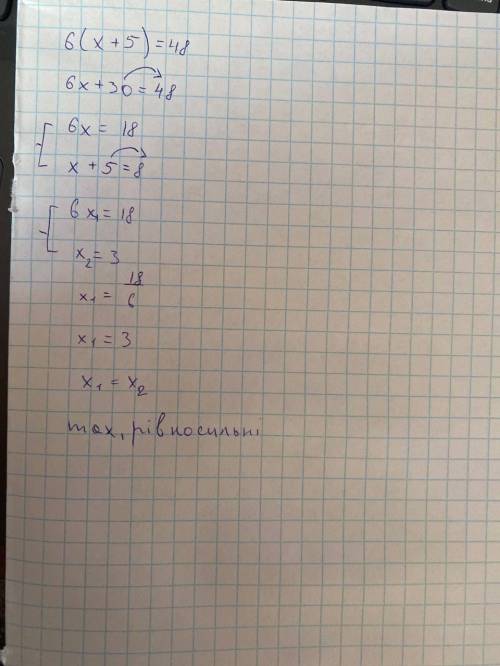 6(x+5)=48
6x+30=48
6x=18
x+5=8
6x₁=18
x₂=3
x₁=18/6
x₁=3
x₁=x₂
так, рівносильні